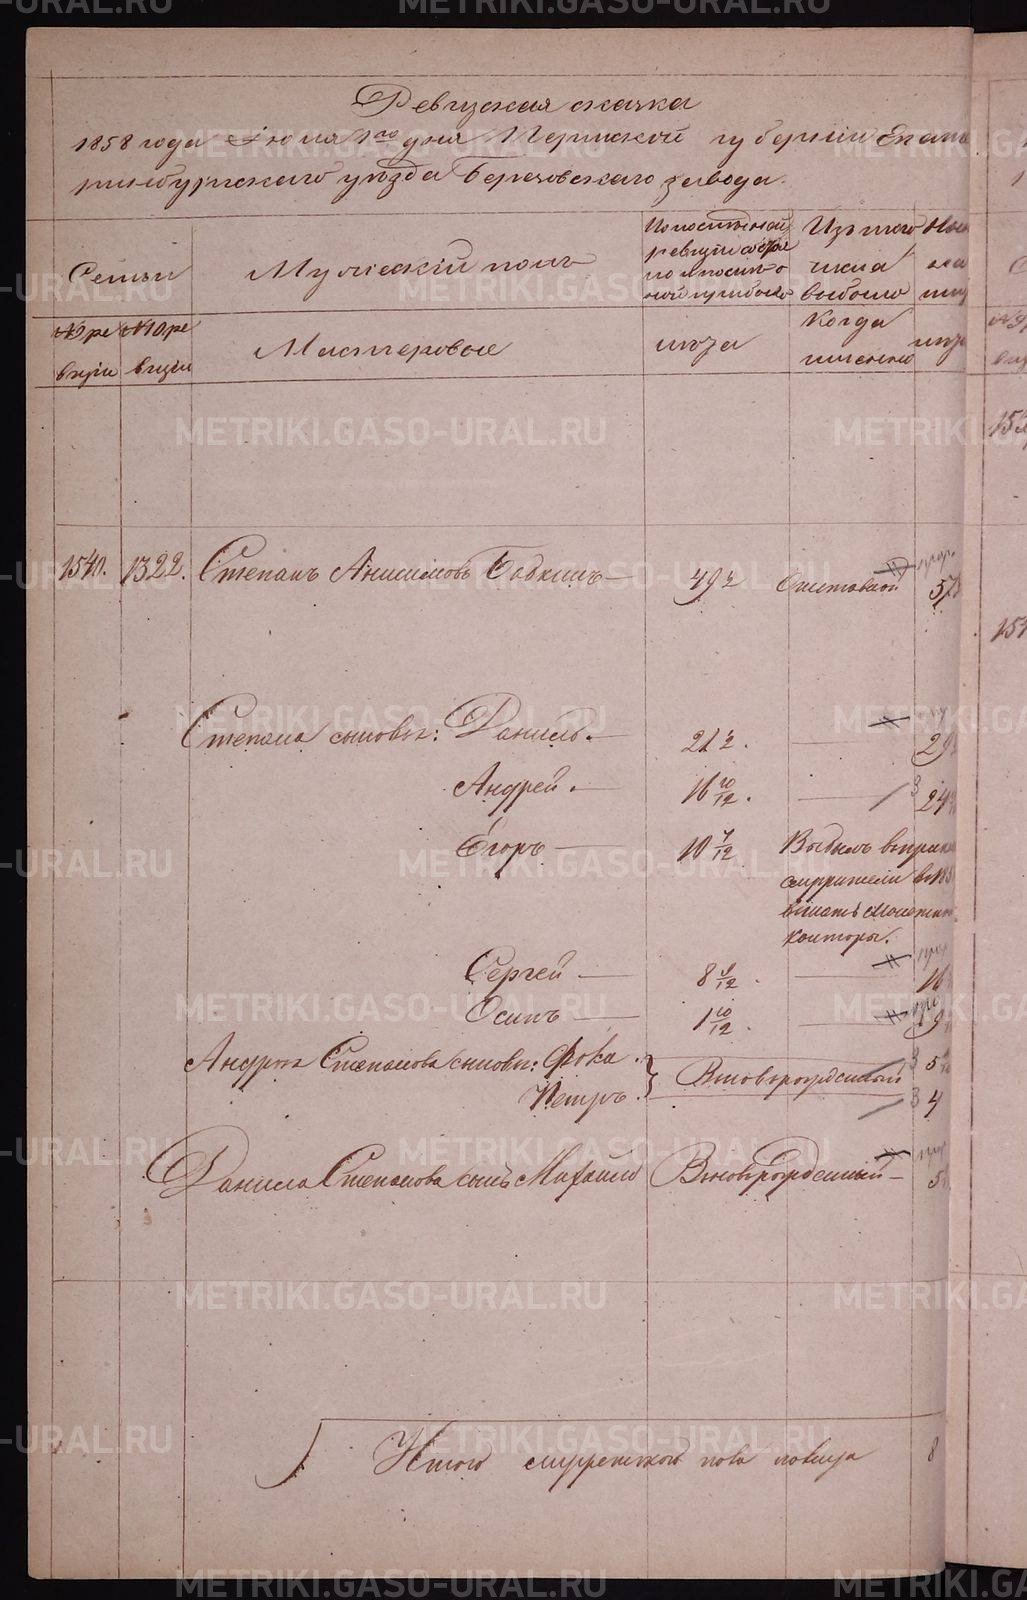 Ревизская сказка
1858 года Июня 1го дня Пермской губерніи Екате
ринбургскаго уѣзда Березовскаго завода.
Семьи
Мужескій полъ
По послѣдней
ревизіи состоя
ло и послѣ о
ной прибыло
Изъ того
числа
выбыло
Ны
на
ли
№ 9 ре
визіи
№ 10 ре
визіи
Мастеровые
лѣта
Когда
именно
лѣт
1541. 1322. Степанъ Анисимовъ Бабкинъ — 49½ Отставной 57
Степана сыновья: Данилъ. — 21½. — 29
Андрей. — 16 10/12. — 24
Егоръ — 10 7/12 Выбылъ
служители в 185
контеры.
Сергей — 8 1/12. — 16
Осипъ — 1 10/12. — 9
Андрея Степанова сыновья: Фока.
Петръ. } Вновьрожденный 5
4
Данила Степанова сынъ Михайло Вновьрожденный — 5
Итого мужескаго пола на лицо 8
METRIKI.GASO-URAL.RU